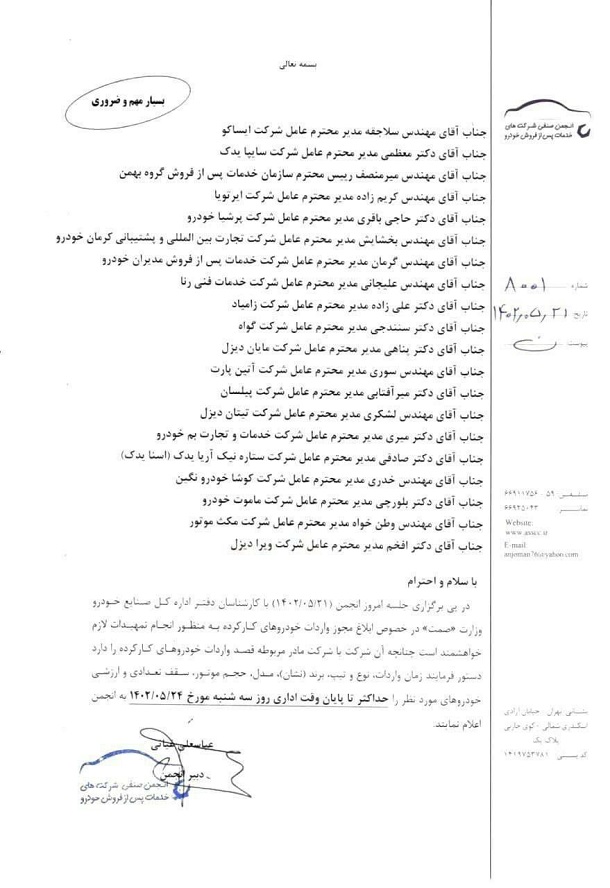 بسمه تعالی
بسیار مهم و ضروری
انجمن صنفی شرکت های
خدمات پس از فروش خودرو
شماره ۸۰۰۱
تاریخ ۱۴۰۲٫۰۵٫۲۱
پیوست
جناب آقای مهندس سلاجقه مدیر محترم عامل شرکت ایساکو
جناب آقای دکتر معظمی مدیر محترم عامل شرکت سایپا یدک
جناب آقای مهندس میرمنصف رییس محترم سازمان خدمات پس از فروش گروه بهمن
جناب آقای مهندس کریم زاده مدیر محترم عامل شرکت ایرتویا
جناب آقای دکتر حاجی باقری مدیر محترم عامل شرکت پرشیا خودرو
جناب آقای مهندس بخشایش مدیر محترم عامل شرکت تجارت بین المللی و پشتیبانی کرمان خودرو
جناب آقای مهندس گرمان مدیر محترم عامل شرکت خدمات پس از فروش مدیران خودرو
جناب آقای مهندس علیجانی مدیر محترم عامل شرکت خدمات فنی رنا
جناب آقای دکتر علی زاده مدیر محترم عامل شرکت زامیاد
جناب آقای دکتر سنندجی مدیر محترم عامل شرکت گواه
جناب آقای دکتر پناهی مدیر محترم عامل شرکت مایان دیزل
جناب آقای مهندس سوری مدیر محترم عامل شرکت آتین پارت
جناب آقای دکتر میرآفتابی مدیر محترم عامل شرکت پیلسان
جناب آقای مهندس لشکری مدیر محترم عامل شرکت تیتان دیزل
جناب آقای دکتر میری مدیر محترم عامل شرکت خدمات و تجارت بم خودرو
جناب آقای دکتر صادقی مدیر محترم عامل شرکت ستاره نیک آریا یدک (اسنا یدک)
جناب آقای مهندس خدری مدیر محترم عامل شرکت کوشا خودرو نگین
جناب آقای دکتر بلورچی مدیر محترم عامل شرکت ماموت خودرو
جناب آقای مهندس وطن خواه مدیر محترم عامل شرکت مکث موتور
جناب آقای دکتر افخم مدیر محترم عامل شرکت ویرا دیزل
با سلام و احترام
در پی برگزاری جلسه امروز انجمن (۱۴۰۲/۰۵/۲۱) با کارشناسان دفتر اداره کل صنایع خودرو
وزارت «صمت» در خصوص ابلاغ مجوز واردات خودروهای کارکرده به منظور انجام تمهیدات لازم
خواهشمند است چنانچه آن شرکت یا شرکت مادر مربوطه قصد واردات خودروهای کارکرده را دارد
دستور فرمایند زمان واردات، نوع و تیپ، برند (نشان)، مدل، حجم موتور، سقف تعدادی و ارزشی
خودروهای مورد نظر را حداکثر تا پایان وقت اداری روز سه شنبه مورخ ۱۴۰۲/۰۵/۲۴ به انجمن
اعلام نمایند.
عباسعلی
دبیر انجمن
انجمن صنفی شرکت های
خدمات پس از فروش خودرو
تلفن ۵۹ - ۶۶۹۱۱۷۵۶
نمابر ۶۶۹۲۵۰۴۳
Website:
www.asscc.ir
E-mail:
anjoman76@yahoo.com
نشانی: تهران - خیابان آزادی
اسکندری شمالی - کوی خارابی
پلاک یک
کد پستی ۱۴۱۹۷۵۳۷۸۱